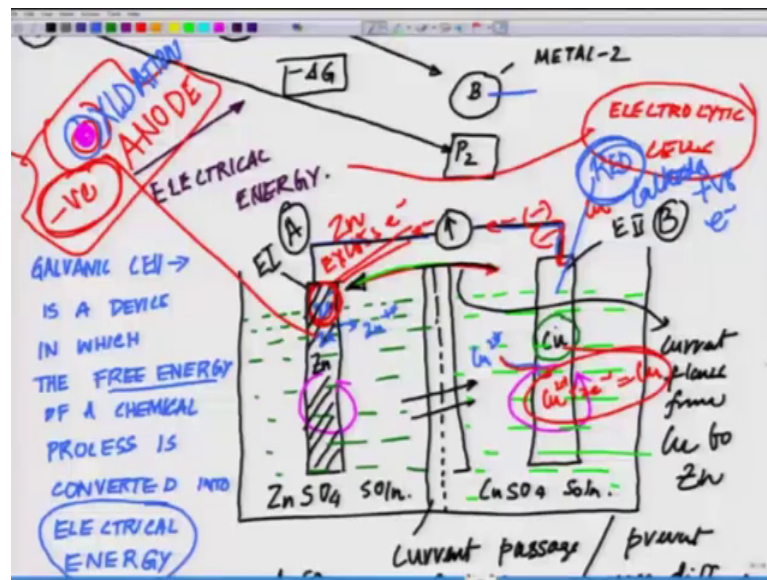 METAL-2
-ΔG
B
P2
OXIDATION
ANODE
-ve
ELECTRICAL
ENERGY.
ELECTROLYTIC
CELLS
RED
Cathode
+ve
e-
A
Zn
EXCESS e-
e-
e- (-)
E I
E II
B
GALVANIC CELL →
IS A DEVICE
IN WHICH
THE FREE ENERGY
OF A CHEMICAL
PROCESS IS
CONVERTED INTO
ELECTRICAL
ENERGY
Zn
Zn2+
Zn
Cu
Cu2+
Cu2+ + 2e- = Cu
Current
flows
from
Cu to
Zn
ZnSO4 Soln.
CuSO4 Soln.
Current passage
prevent